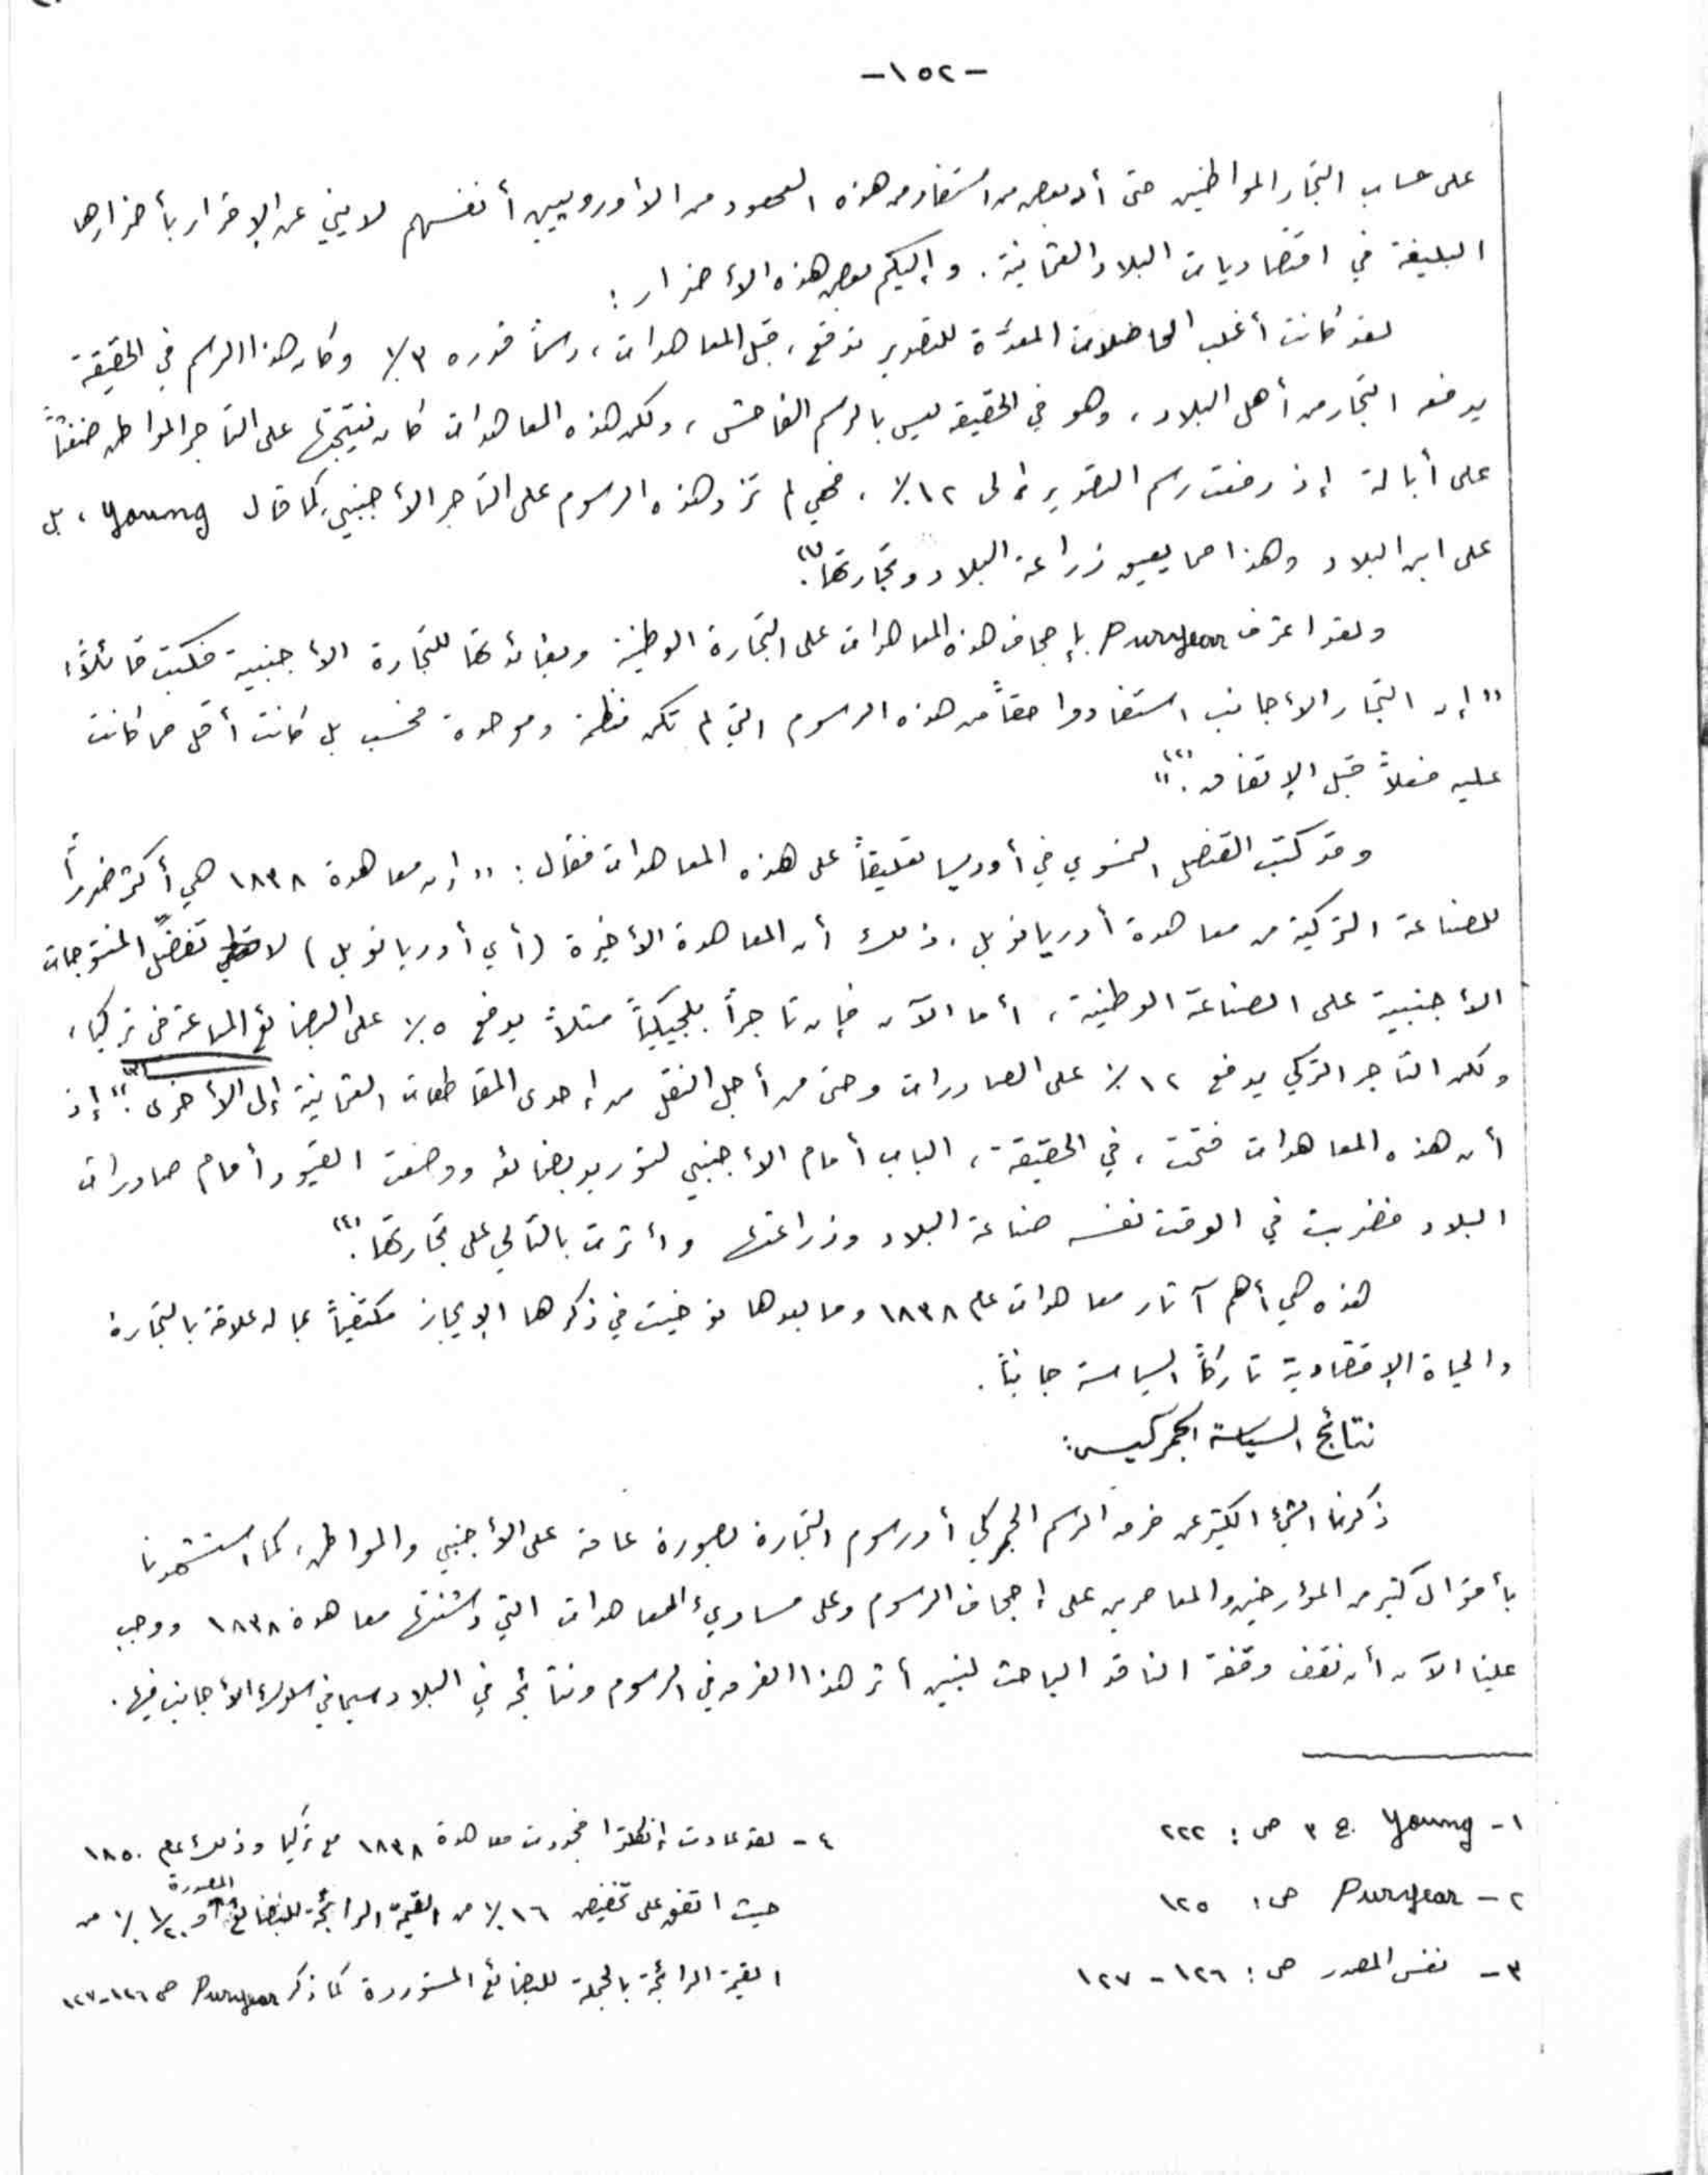 -١٥٢-
على حساب التجار المواطنين حتى أن بعض من استفاد من هذه العهود من الأوروبيين أنفسهم لا يني عن الإقرار بأضرارها
البليغة في اقتصاديات البلاد العثمانية. وإليكم بعض هذه الأضرار:
لقد كانت أغلب الحاصلات المعدَّة للتصدير تدفع، قبل المعاهدات، رسماً قدره ٣٪ وكان هذا الرسم في الحقيقة
يدفعه التجار من أهل البلاد، وهو في الحقيقة ليس بالرسم الفاحش، ولكن هذه المعاهدات كان نتيجتها على التاجر المواطن ضغثاً
على أبالة إذ رفعت رسم التصدير إلى ١٢٪. فهي لم تزد هذه الرسوم على التاجر الأجنبي كما قال Young، بل
على ابن البلاد وهذا مما يعيق زراعة البلاد وتجارتها.(١)
ولقد اعترف Puryear بإجحاف هذه المعاهدات على التجارة الوطنية وبفائدتها للتجارة الأجنبية فكتب قائلاً:
"إن التجار الأجانب استفادوا حقاً من هذه الرسوم التي لم تكن منظمة وموحدة فحسب بل كانت أقل مما كانت
عليه فعلاً قبل الإتفاق."(٢)
وقد كتب القنصل النمسوي في أودريسا تعليقاً على هذه المعاهدات فقال: "إن معاهدة ١٨٣٨ هي أكثر ضرراً
للصناعة التركية من معاهدة أدريانوبل، ذلك أن المعاهدة الأخيرة (أي أدريانوبل) لا تفضّل المنتوجات
الأجنبية على الصناعة الوطنية، أما الآن فإن تاجراً بلجيكياً مثلاً يدفع ٥٪ على البضائع المباعة في تركيا،
ولكن التاجر التركي يدفع ١٢٪ على الصادرات وحتى من أجل النقل من إحدى المقاطعات العثمانية إلى الأخرى."(٣) إذ
أن هذه المعاهدات فتحت، في الحقيقة، الباب أمام الأجنبي لتوريد بضائعه ووضعت القيود أمام صادرات
البلاد فضربت في الوقت نفسه صناعة البلاد وزراعتها وأثرت بالتالي على تجارتها.(٤)
هذه هي أهم آثار معاهدات عام ١٨٣٨ وما بعدها توخيت في ذكرها الإيجاز مكتفياً بما له علاقة بالتجارة
والحياة الإقتصادية تاركاً السياسة جانباً.
نتائج السياسة الجمركية:
ذكرنا الشيء الكثير عن فرق الرسم الجمركي أو رسوم التجارة بصورة عامة على الأجنبي والمواطن، كما استشهدنا
بأقوال كثير من المؤرخين والمعاصرين على إجحاف الرسوم وعلى مساوىء المعاهدات التي دشنتها معاهدة ١٨٣٨ ووجب
علينا الآن أن نقف وقفة الناقد الباحث لنبين أثر هذا الفرق في الرسوم ونتائجه في البلاد سيما في سلوك الأجانب فيها.
١- Young ج ٣ ص: ٢٢٢
٢- Puryear ص: ١٢٥
٣- نفس المصدر ص: ١٢٦-١٢٧
٤- لقد عادت إنكلترا فجددت معاهدة ١٨٣٨ مع تركيا وذلك عام ١٨٥٠
حيث اتفق على تخفيض ١٦٪ من القيمة الرائجة للبضائع المصدرة و ٢٠ ١/٢٪ من
القيمة الرائجة بالجملة للبضائع المستوردة كما ذكر Puryear ص ١٢٦-١٢٧